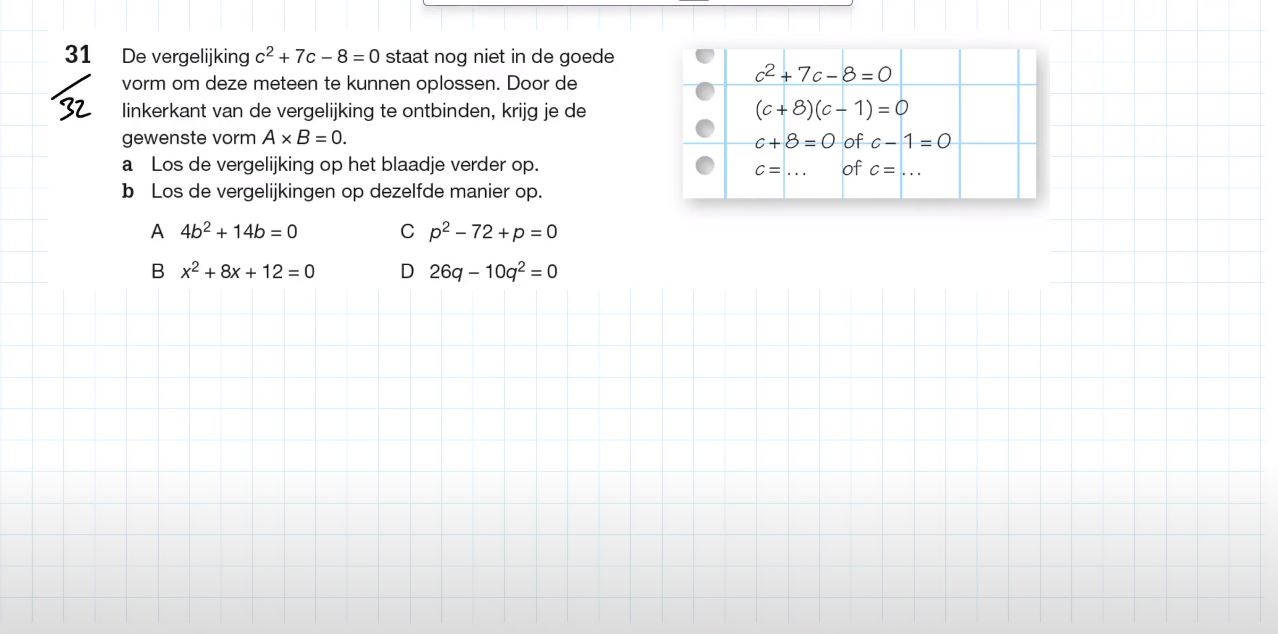 31 De vergelijking c² + 7c – 8 = 0 staat nog niet in de goede
32 vorm om deze meteen te kunnen oplossen. Door de
linkerkant van de vergelijking te ontbinden, krijg je de
gewenste vorm A × B = 0.
a Los de vergelijking op het blaadje verder op.
b Los de vergelijkingen op dezelfde manier op.
A 4b² + 14b = 0
C p² – 72 + p = 0
B x² + 8x + 12 = 0
D 26q – 10q² = 0
c² + 7c – 8 = 0
(c + 8)(c – 1) = 0
c + 8 = 0 of c – 1 = 0
c = ... of c = ...